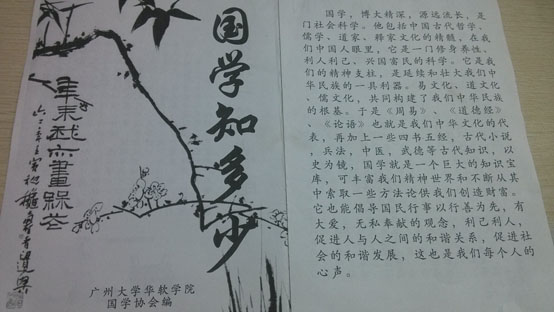 国学知多少
广州大学华软学院
国学协会编
国学，博大精深，源远流长，是
门社会科学。他包括中国古代哲学、
儒学、道家、释家文化的精髓，在我
们中国人眼里，它是一门修身养性、
利人利己、兴国富民的科学。它是我
们的精神支柱，是延续和壮大我们中
华民族的一具利器。易文化、道文化
、儒文化，共同构建了我们中华民族
的根基。于是《周易》、《道德经》
、《论语》也就是我们中华文化的代
表，再加上一些四书五经，古代小说
，兵法，中医，武德等古代知识，以
史为镜，国学就是一个巨大的知识宝
库，可丰富我们精神世界和不断从其
中索取一些方法论供我们创造财富。
它也能倡导国民行事以行善为先，有
大爱，无私奉献的观念，利己利人，
促进人与人之间的和谐关系，促进社
会的和谐发展，这也是我们每个人的
心声。